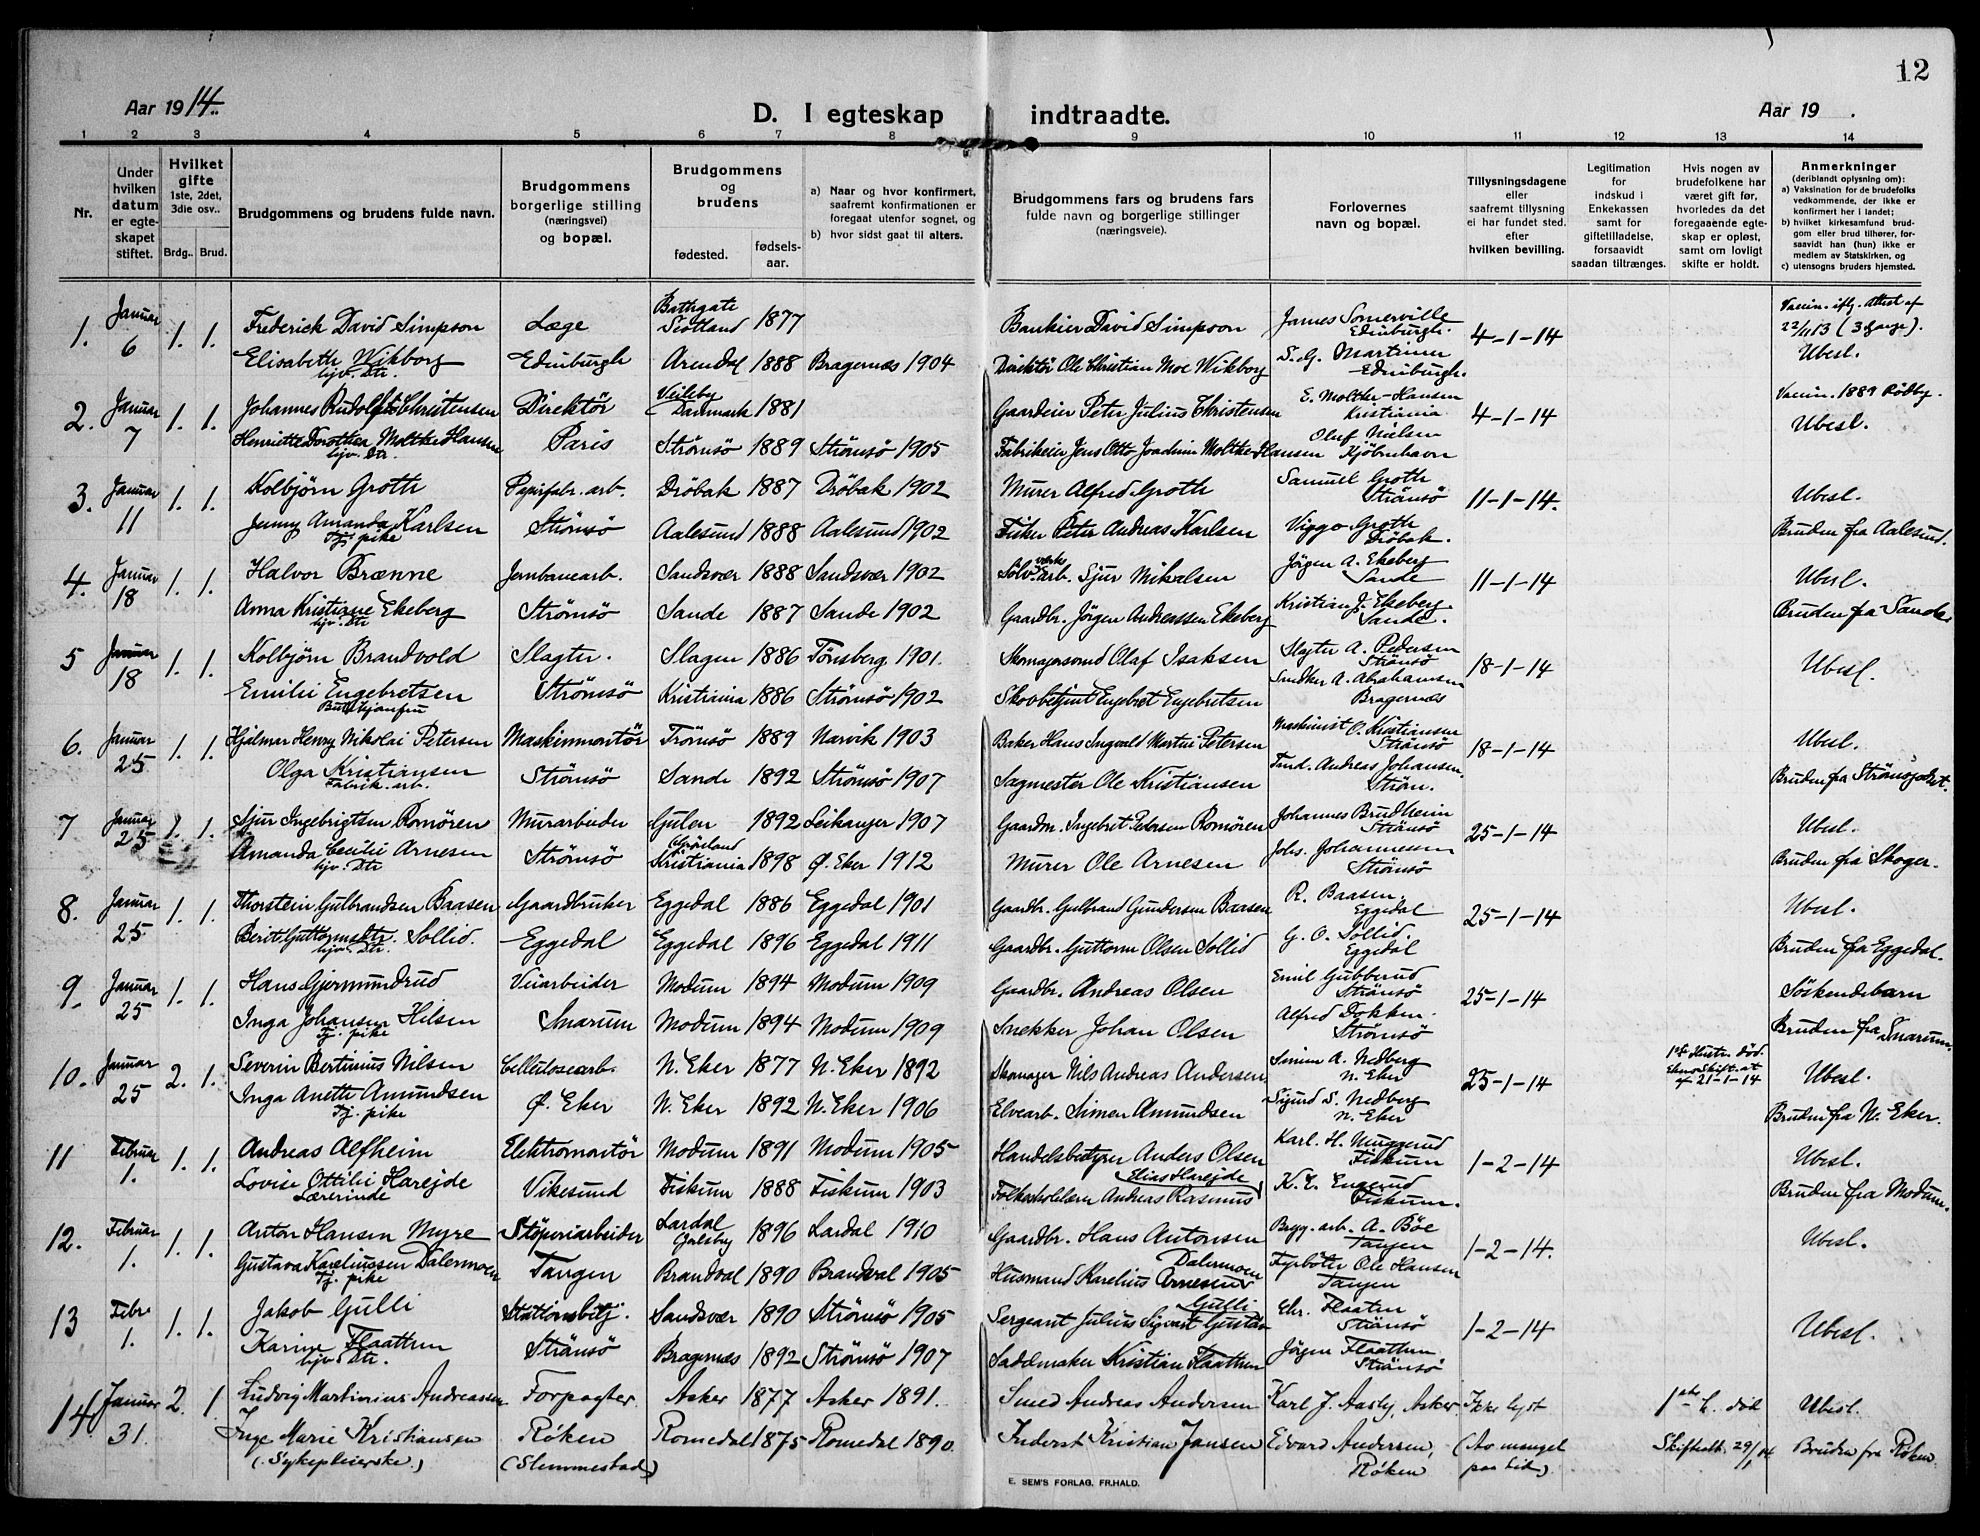 12
Aar 1914.
D. I egteskap indtraadte.
Aar 19 .
1 2 3 4 5 6 7 8 9 10 11 12 13 14
Nr.
Under hvilken datum er egteskapet stiftet.
Hvilket gifte 1ste, 2det, 3die osv..
Brdg.. Brud.
Brudgommens og brudens fulde navn.
Brudgommens borgerlige stilling (næringsvei) og bopæl.
Brudgommens og brudens
fødested. fødselsaar.
a) Naar og hvor konfirmert, saafremt konfirmationen er foregaat utenfor sognet, og
b) hvor sidst gaat til alters.
Brudgommens fars og brudens fars fulde navn og borgerlige stillinger (næringsveie).
Forlovernes navn og bopæl.
Tillysningsdagene eller saafremt tillysning ei har fundet sted. efter hvilken bevilling.
Legitimation for indskud i Enkekassen samt for giftetilladelse, forsaavidt saadan tiltrænges.
Hvis nogen av brudefolkene har været gift før, hvorledes da det foregaaende egteskap er opløst, samt om lovligt skifte er holdt.
Anmerkninger (deriblandt oplysning om):
a) Vaksination for de brudefolks vedkommende, der ikke er konfirmert her i landet;
b) hvilket kirkesamfund brudgom eller brud tilhører, forsaavidt han (hun) ikke er medlem av Statskirken, og
c) utensogns bruders hjemsted.
1. Januar 6 1. 1. Frederick David Simpson Læge Bathgate Scotland 1877 Bankier David Simpson James Somerville Edinburgh. 4-1-14 Vaccin. iflg. attest af 22/11 13 (3 gange).
Elisabeth Wikborg hjv. Dtr. Edinburgh Arendal 1888 Bragernæs 1904 Direktör Ole Christian Moe Wikborg S. G. Edinburgh. Ubesl.
2. Januar 7 1. 1. Johannes Rudolf Christensen Direktör Veileby Danmark 1881 Gaardeier Peter Julius Christensen E. Moltke-Hansen Kristiania 4-1-14 Vaccin. 1889 Rödby.
Henriette Dorothea Moltke Hansen hjv. Dtr. Paris Strömsö 1889 Strömsö 1905 Fabrikeier Jens Otto Joachim Moltke-Hansen Oluf Nielsen Kjöbenhavn Ubesl.
3. Januar 11 1. 1. Kolbjörn Groth Papirfabr. arb. Dröbak 1887 Dröbak 1902 Murer Alfred Groth Samuel Groth Strömsö 11-1-14. Ubesl.
Jenny Amanda Karlsen Tj. pike Strömsö Aalesund 1888 Aalesund 1902 Fisker Peter Andreas Karlsen Viggo Groth Dröbak. Bruden fra Aalesund.
4. Januar 18 1. 1. Halvor Brænne Jernbanearb. Sandsvær 1888 Sandsvær 1902 Sölvverksarb. Sjur Mikalsen Jörgen A. Ekeberg Sande 11-1-14 Ubesl.
Anna Kristiane Ekeberg hjv. Dtr Strömsö Sande 1887 Sande 1902 Gaardbr. Jörgen Andreassen Ekeberg Kristian J. Ekeberg Sande. Bruden fra Sande.
5 Januar 18 1. 1. Kolbjörn Brandvold Slagter. Slagen 1886 Tönsberg 1901. Skomagersvend Olaf Isaksen Slagter A. Pedersen Strömsö 18-1-14 Ubesl.
Emilie Engebretsen Strömsö Kristiania 1886 Strömsö 1902 Skovbetjent Engebret Engebretsen Snedker A. Abrahamsen Bragernæs
6. Januar 25 1. 1. Hjalmar Henry Nikolai Petersen Maskinmontör Tromsö 1889 Narvik 1903 Baker Hans Ingvald Martin Petersen Maskinist O. Kristiansen Strömsö 18-1-14 Ubesl.
Olga Kristiansen Fabrik. arb. Strömsö Sande 1892 Strömsö 1907 Sagmester Ole Kristiansen Andreas Johansen. Ström. Bruden fra
7 Januar 25 1. 1. Sjur Ingebrigtsen Romören Murarbeider Gulen 1892 Leikanger 1907 Gaardm. Ingebret Pedersen Romören Johannes Brudheim Strömsö 25-1-14 Ubesl.
Amanda Cecilie Arnesen hjv. Dtr Strömsö Grönland Kristiania 1898 Ö. Eker 1912 Murer Ole Arnesen Johs. Johannesen Strömsö Bruden fra Skoger.
8. Januar 25 1. 1. Thorstein Gulbrandsen Baasen Gaardbruker Eggedal 1886 Eggedal 1901 Gaardbr. Gulbrand Gundersen Baasen R. Baasen. Eggedal 25-1-14 Ubesl.
Berit Guttormsdtr. Sollid. hjv. Dtr. Eggedal Eggedal 1896 Eggedal 1911 Gaardbr. Guttorm Olsen Sollid G. O. Sollid. Eggedal Bruden fra Eggedal.
9. Januar 25 1. 1. Hans Gjermundrud Veiarbeider Modum 1894 Modum 1909 Gaardbr. Andreas Olsen Emil Gubberud Strömsö 25-1-14 Söskendebarn
Inga Johansen Hilsen Tj. pike Snarum Modum 1894 Modum 1909 Snekker Johan Olsen Alfred Dokken. Strömsö Bruden fra Snarum.
10. Januar 25 2. 1. Severin Bertinius Nilsen Cellulosearb. N. Eker 1877 N. Eker 1892 Skomager Nils Andreas Andersen Simen A. Nedberg N. Eker 25-1-14 1ste Hustr. död. Skift. at af 21-1-14 Ubesl.
Inga Anette Amundsen Tj. pike Ö. Eker N. Eker 1892 N. Eker 1906 Elvearb. Simen Amundsen Sigurd S. Nedberg N. Eker Bruden fra N. Eker.
11 Februar 1. 1. 1. Andreas Alfheim Elektromontör Modum 1891 Modum 1905 Handelsbestyrer Anders Olsen Karl. H. Muggerud Fiskum 1-2-14 Ubesl.
Lovise Ottilie Harejde Lærerinde Vikesund Fiskum 1888 Fiskum 1903 Folkeskolelærer Andreas Rasmus Elias Harejde K. E. Engerud Fiskum. Bruden fra Modum.
12. Februar 1. 1. 1. Anton Hansen Myre Stöperiarbeider Lardal 1896 Lardal 1910 Gaardbr. Hans Antonsen Brygg. arb. A. Böe Tangen 1-2-14. Ubesl.
Gustava Kareliussen Dalermoen Tj. pike Tangen Brandval 1890 Brandval 1905 Husmand Karelius Arnesen Dalermoen Fyrböter Ole Hansen Tangen
13 Febr 1. 1. 1. Jakob Gulli Stationsbetj. Sandsvær 1890 Strömsö 1905 Sergeant Julius Sigvart Gustav Gulli Chr. Flaaten Strömsö 1-2-14 Ubesl.
Karine Flaatten hjv. Dtr. Strömsö Bragernæs 1892 Strömsö 1907 Sadelmaker Kristian Flaatten Jörgen Flaatten Strömsö
14 Januar 31. 2. 1 Ludvig Martinius Andreassen Forpagter Asker 1877 Asker 1891. Smed Andreas Andersen Karl J. Aasly, Asker. Ikke lyst 1ste h. död Ubesl.
Inge Marie Kristiansen (Sykepleierske.) Röken (Slemmestad) Romedal 1875 Romedal 1890. Inderst Kristian Jansen Edvard Andersen, Röken (Av mangel paa tid). Skifteatt. 29/1 14 Bruden fra Röken
E. SEM'S FORLAG, FR.HALD.